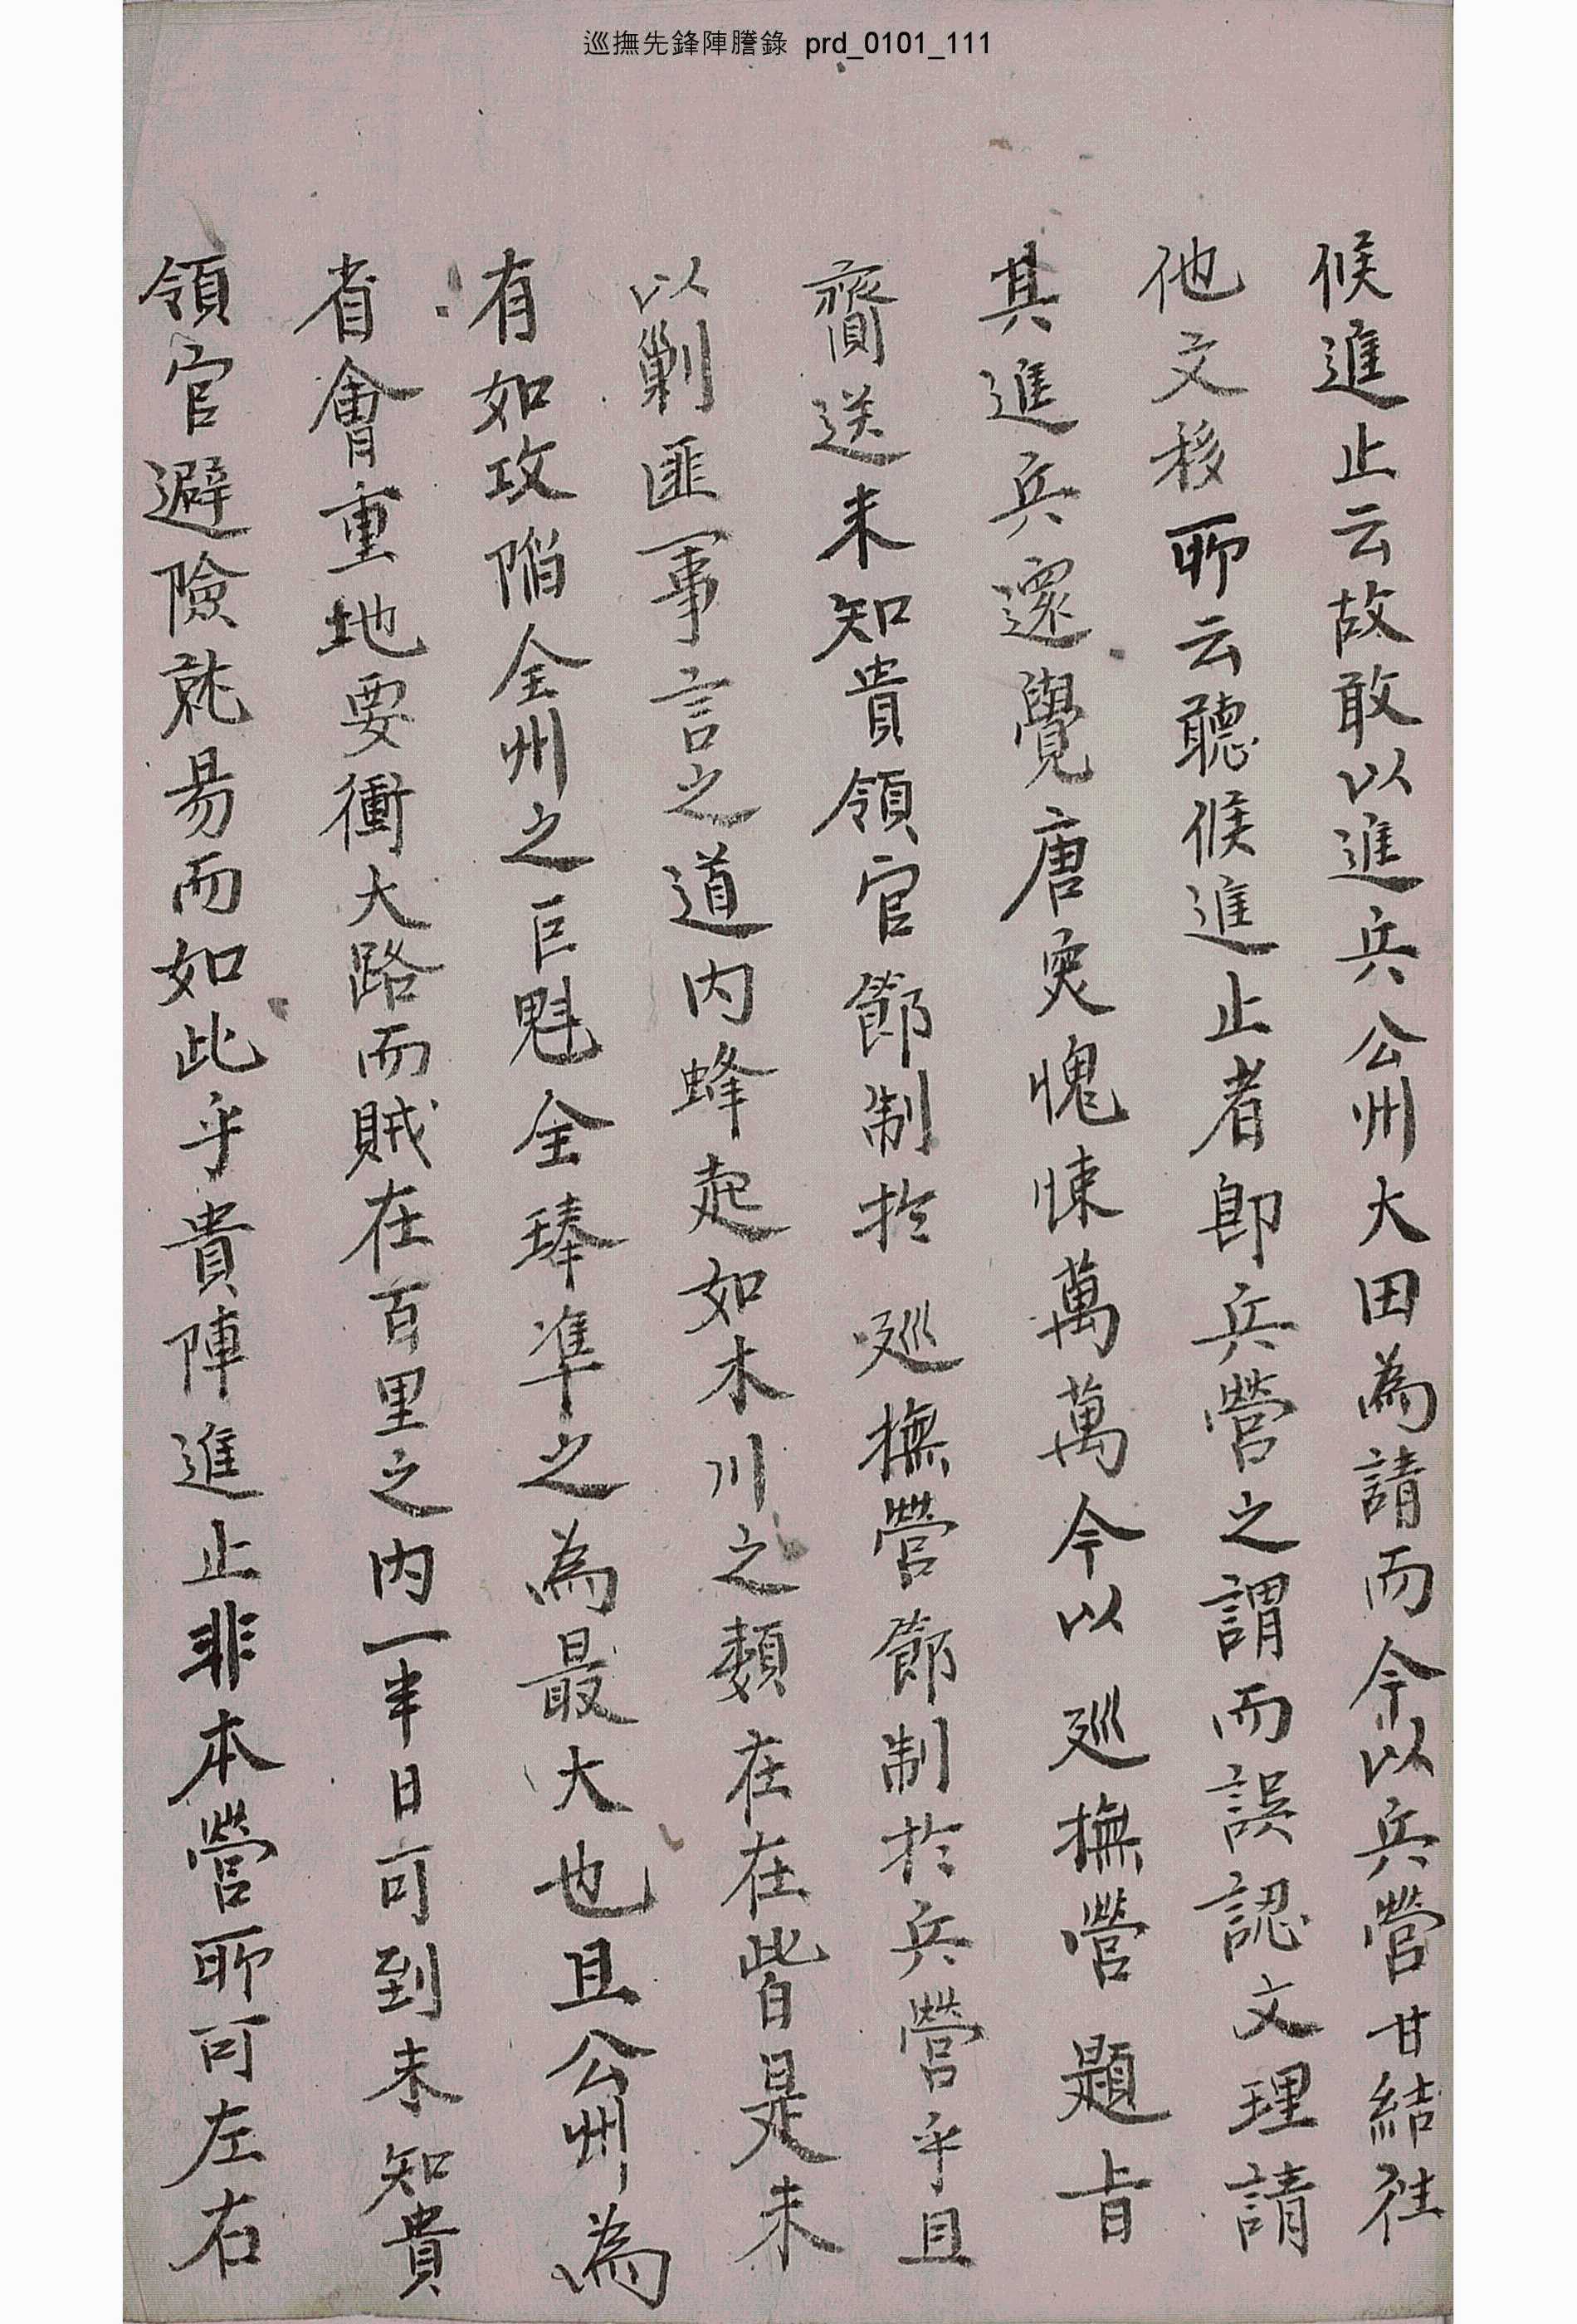 巡撫先鋒陣謄錄 prd_0101_111
候進止云故敢以進兵公州大田為請而今以兵營甘結往
他文移所云聽候進止者卽兵營之謂而誤認文理請
其進兵還覺唐突愧悚萬萬今以 巡撫營 題旨
齎送未知貴領官節制於 巡撫營節制於兵營乎且
以剿匪事言之道內蜂起如木川之類在在皆是未
有如攻陷全州之巨魁全琫準之為最大也且公州為
省會重地要衝大路而賊在百里之內一半日可到未知貴
領官避險就易而如此乎貴陣進止非本營所可左右